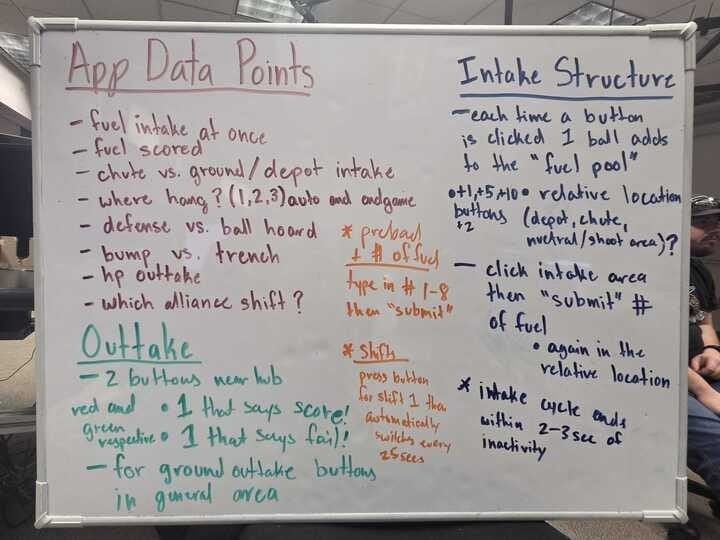 App Data Points
- fuel intake at once
- fuel scored
- chute vs. ground/depot intake
- where hang? (1,2,3) auto and endgame
- defense vs. ball hoard
- bump vs. trench
- hp outtake
- which alliance shift?
* preload
+ # of fuel
type in # 1-8
then "submit"
* Shift
press button
for shift 1 then
automatically
switches every
25secs
Outtake
- 2 buttons near hub
red and
green
respective
• 1 that says score!
• 1 that says fail!
- for ground outtake buttons
in general area
Intake Structure
- each time a button
is clicked 1 ball adds
to the "fuel pool"
• +1,+5,+10
buttons
+2
• relative location
(depot, chute,
nuetral/shoot area)?
- click intake area
then "submit" #
of fuel
• again in the
relative location
* intake cycle ends
within 2-3sec of
inactivity